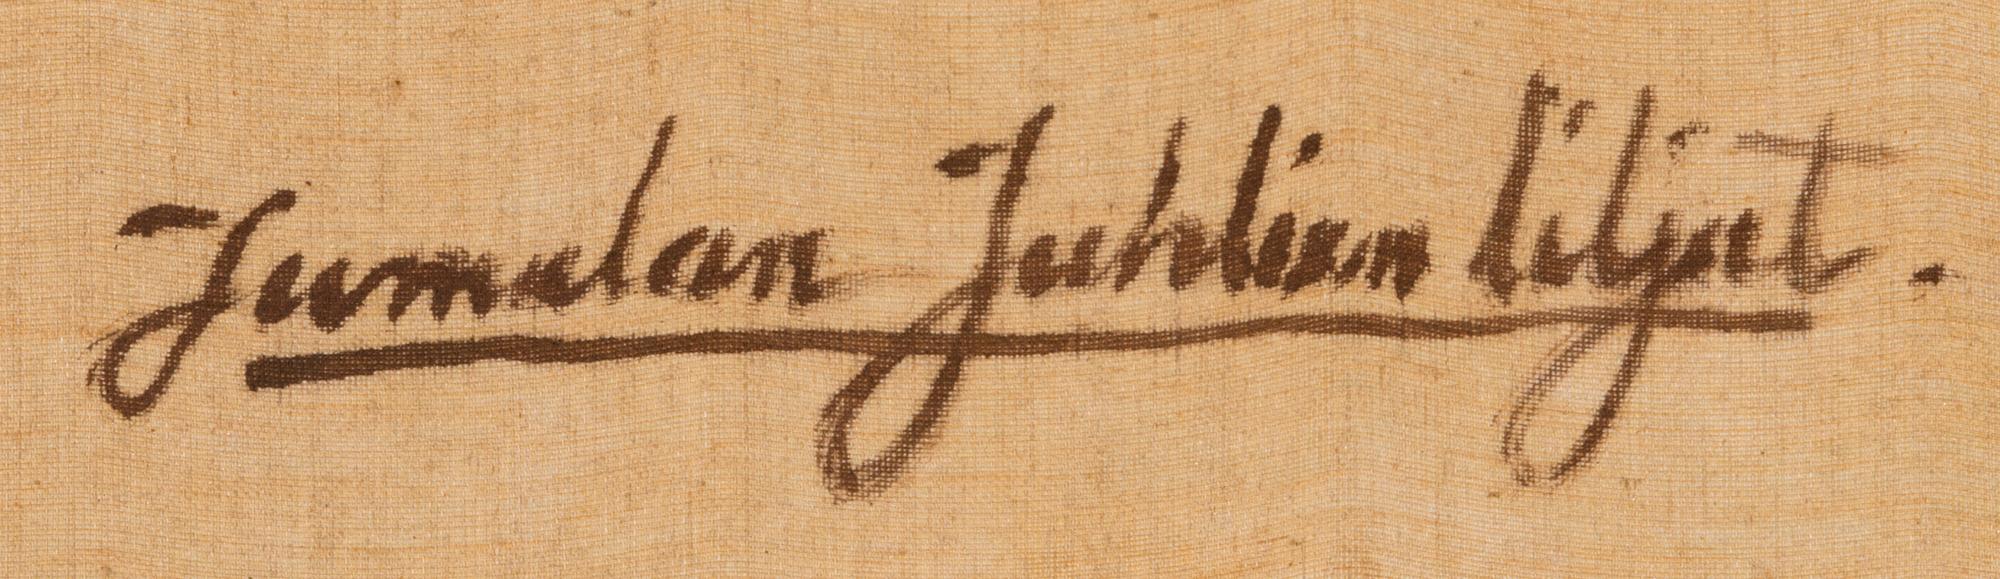 Jumalan Juhlien liljat.